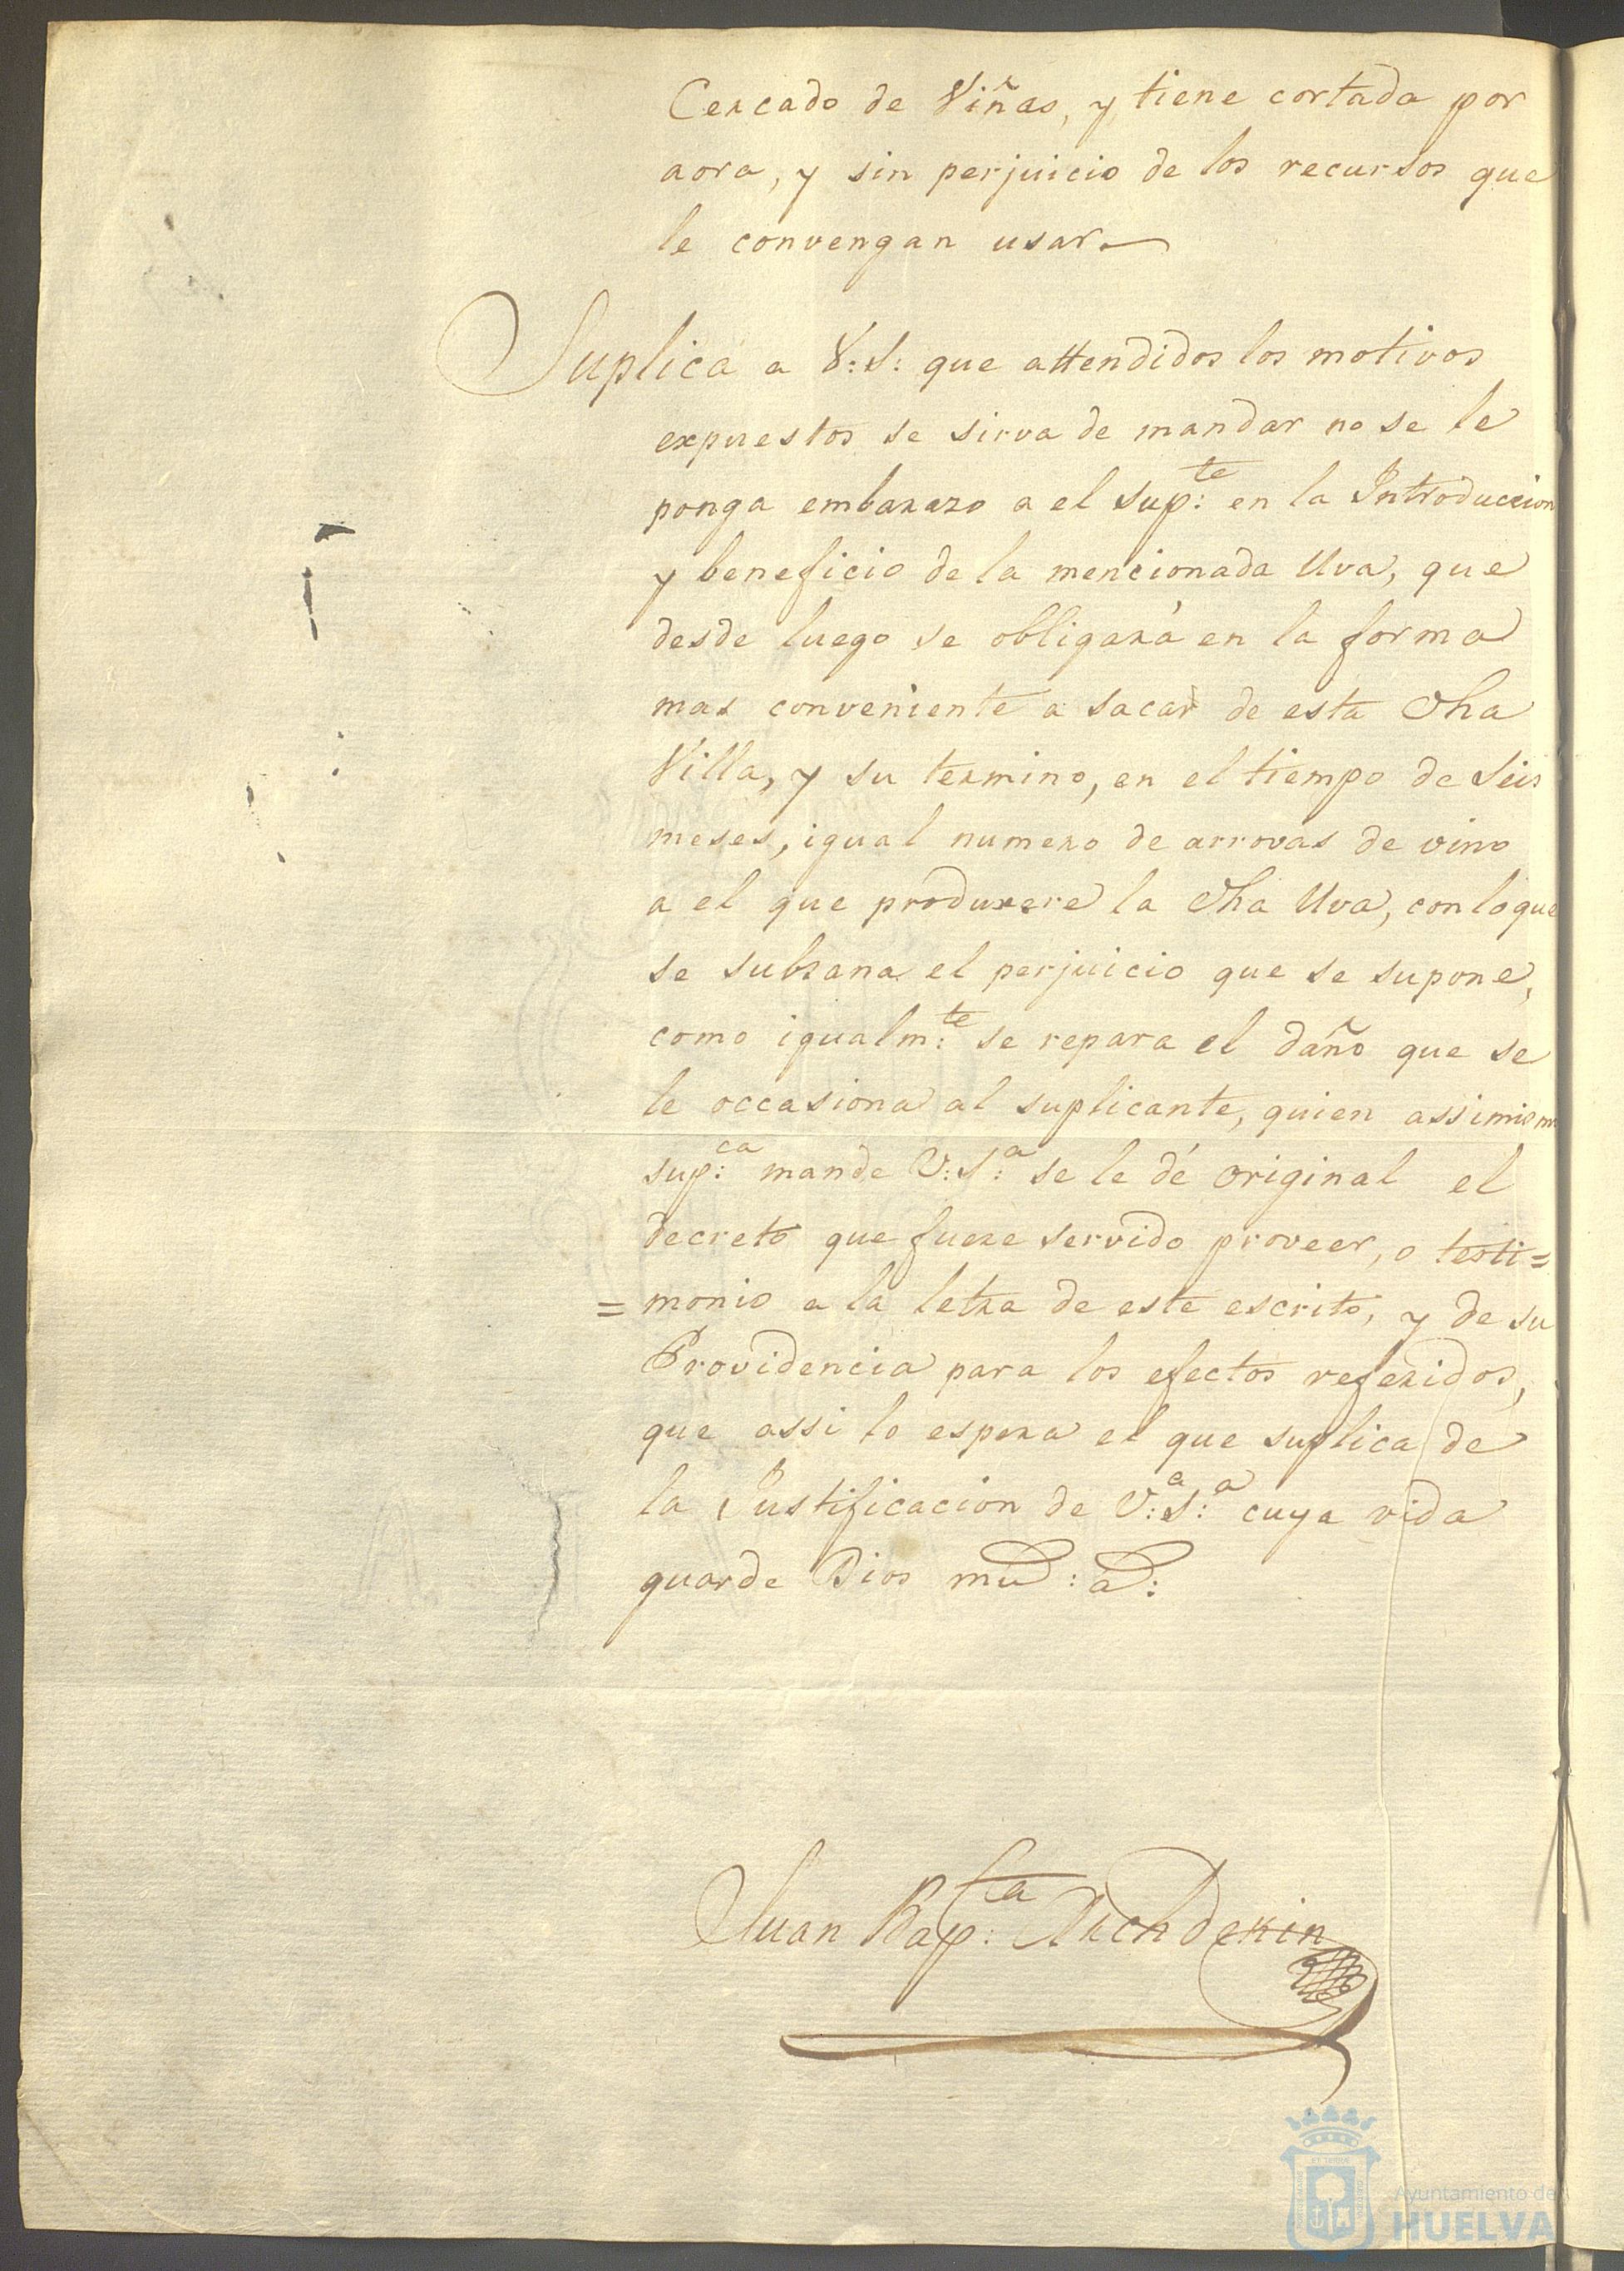 Cercado de Viñas, y tiene cortada por
aora, y sin perjuicio de los recursos que
le convengan usar
Suplica a V:S: que attendidos los motivos
expuestos se sirva de mandar no se le
ponga embarazo a el sup:te en la Introduccion
y beneficio de la mencionada Uva, que
desde luego se obligará en la forma
mas conveniente a sacar de esta dha
Villa, y su termino, en el tiempo de Seis
meses, igual numero de arrovas de vino
a el que produxere la dha Uva, con lo que
se subsana el perjuicio que se supone,
como igualm:te se repara el daño que se
le occasiona al suplicante, quien assimism
sup:ca mande V:S:a se le dé original el
decreto que fuere servido proveer, o testi=
=monio a la letra de este escrito, y de su
Providencia para los efectos referidos,
que assi lo espera el que suplica de
la Justificacion de V:a S:a cuya vida
guarde Dios mu:s a:s
Juan Bap:ta
Ayuntamiento de
HUELVA